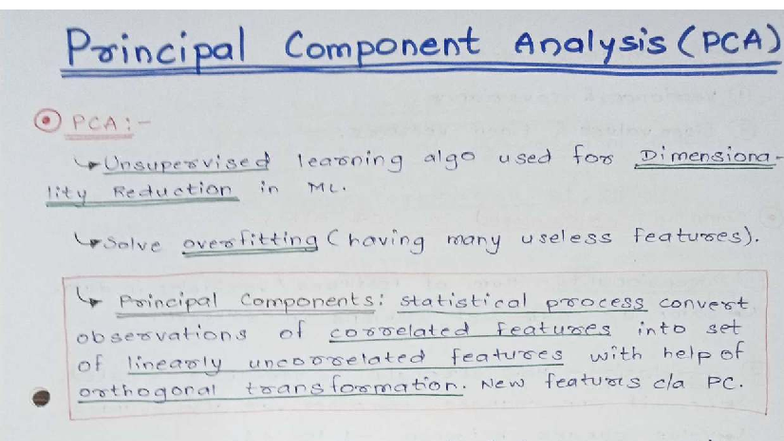 Principal Component Analysis (PCA)
PCA :-
Unsupervised learning algo used for Dimensiona-
lity Reduction in ML.
Solve overfitting (having many useless features).
Principal Components: statistical process convert
observations of correlated features into set
of linearly uncorrelated features with help of
orthogonal transformation. New features c/a PC.